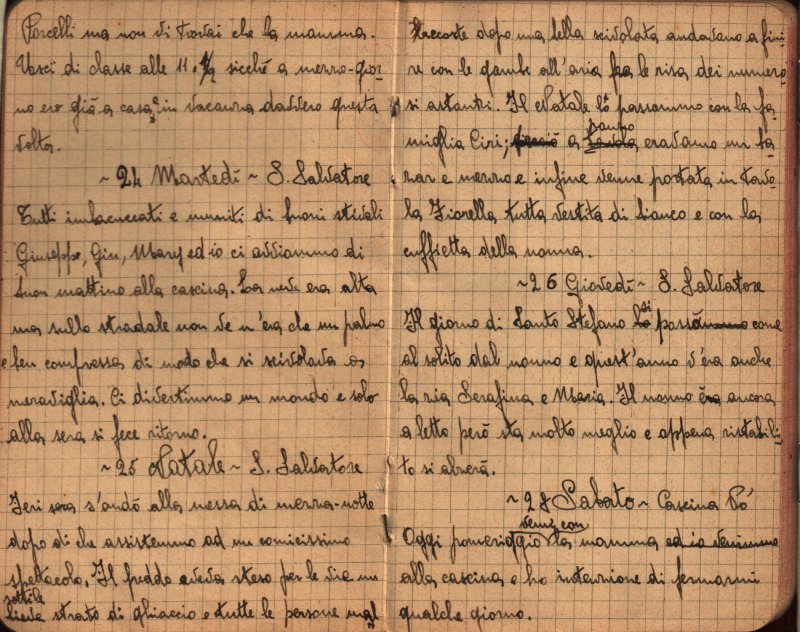 Porcelli ma non vi trovai che la mamma.
Uscì di classe alle 11.½ sicché a mezzo-gior-
no ero già a casa e in vacanza davvero questa
volta.
~ 24 Martedì ~ S. Salvatore
Tutti imbacuccati e muniti di buoni stivali
Giuseppe, Giu, Mary ed io ci avviammo di
buon mattino alla cascina. La neve era alta
ma sullo stradale non ve n'era che un palmo
e ben compressa di modo che si scivolava a
meraviglia. Ci divertimmo un mondo e solo
alla sera si fece ritorno.
~ 25 Natale ~ S. Salvatore
Ieri sera s'andò alla messa di mezza-notte
dopo di che assistemmo ad un comicissimo
spettacolo. Il freddo aveva steso per le vie un
sottile
lieve strato di ghiaccio e tutte le persone mal
accorte dopo una bella scivolata andavano a fini-
re con le gambe all'aria fra le risa dei numero-
si astanti. Il Natale lo passammo con la fa-
miglia Ciri; perciò a
pranzo
tavola eravamo un ba-
zar e mezzo e infine venne portata in tavo-
la Fiorella tutta vestita di bianco e con la
cuffietta della nonna.
~ 26 Giovedì ~ S. Salvatore
Il giorno di Santo Stefano lo si passammo come
al solito dal nonno e quest'anno v'era anche
la zia Serafina e Maria. Il nonno era ancora
a letto però sta molto meglio e appena ristabili-
to si alzerà.
~ 28 Sabato ~ Cascina Po'
venni con
Oggi pomeriggio la mamma ed io venimmo
alla cascina e ho intenzione di fermarmi
qualche giorno.